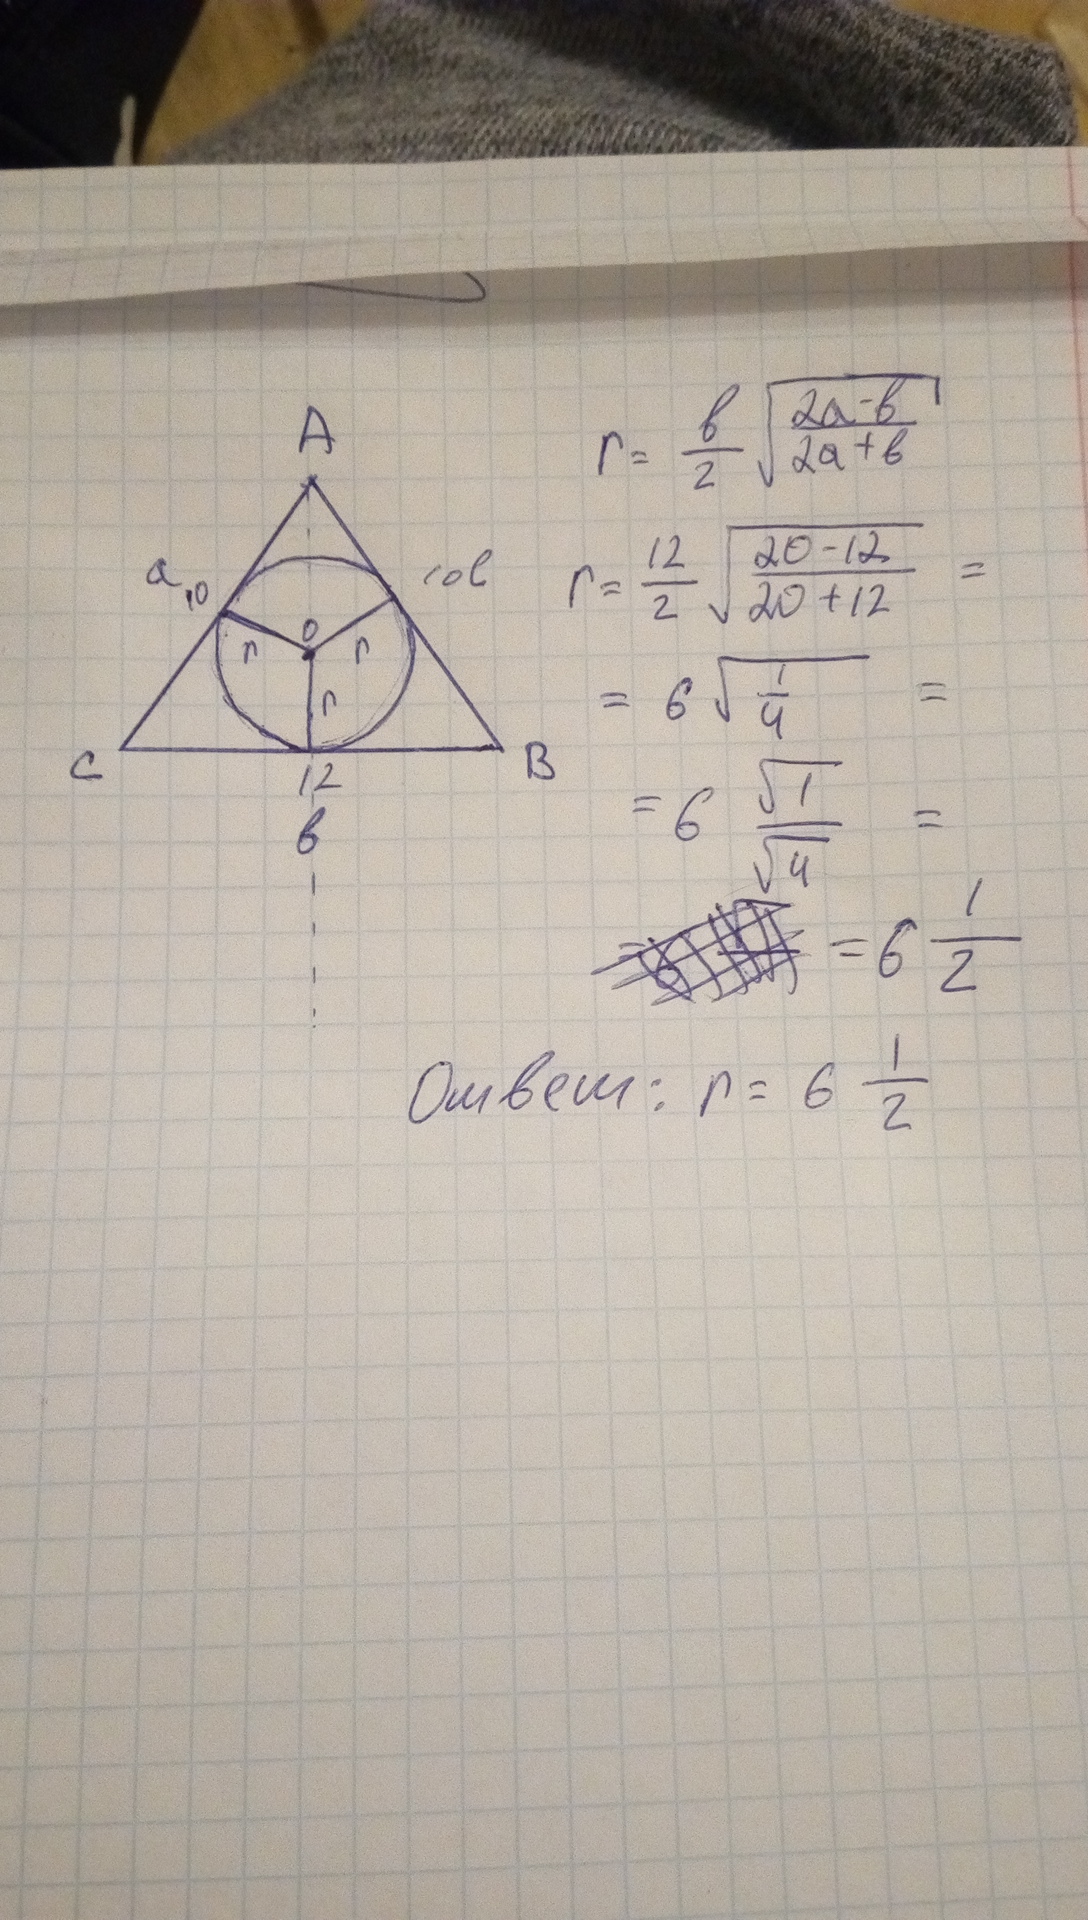 A
a 10
10 в
o
r r
r
C B
12
в
r = в/2 √((2a-в)/(2a+в))
r = 12/2 √((20-12)/(20+12)) =
= 6 √(1/4) =
= 6 √1/√4 =
= 6 1/2
Ответ: r = 6 1/2